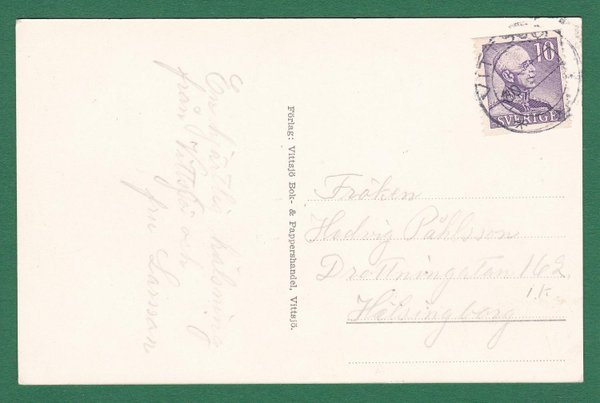 En hjärtlig hälsning
från Vittsjö och
fru Larsson
Förlag: Vittsjö Bok- & Pappershandel, Vittsjö.
10
SVERIGE
VITTSJÖ
Fröken
Hedvig Påhlsson
Drottningatan 162
I.K.
Hälsingborg